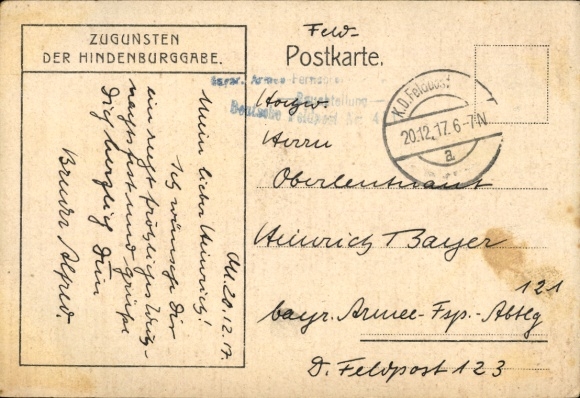 ZUGUNSTEN
DER HINDENBURGGABE.
Feld-
Postkarte.
K.D. Feldpost
20.12.17. 6-7 N
a
bayr. Armee-Fernspr.
Bauabteilung
Deutsche Feldpost Nr. 4
20.12.17.
Mein lieber Heinrich!
Ich wünsche Dir
ein recht fröhliches Weih-
nachtsfest und grüße
Dich herzlich Dein
Bruder Alfred.
Herrn
Oberleutnant
Heinrich Bayer
121
bayr. Armee-Fsp.-Abtlg
D. Feldpost 123